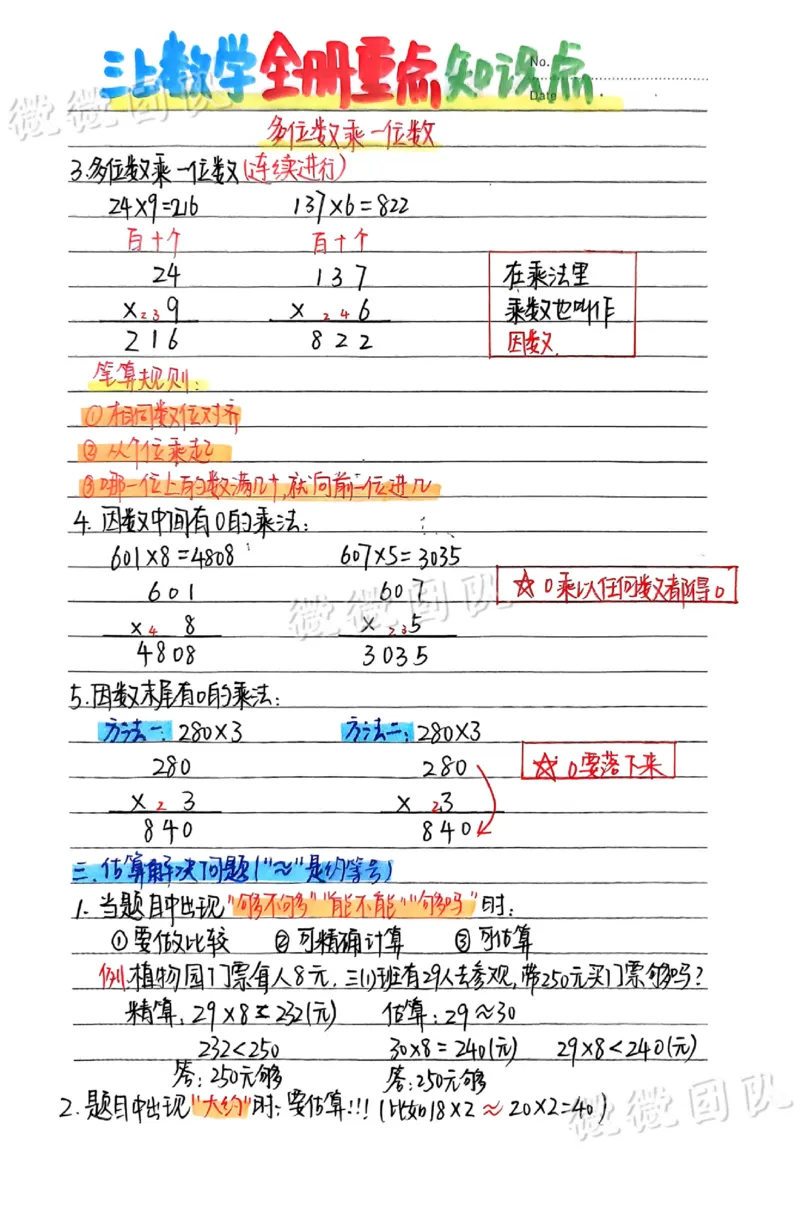 三上数学全册重点知识点
No.
Date
微微团队
多位数乘一位数
3.多位数乘一位数(连续进行)
24×9=216 137×6=822
百十个 百十个
24 137
×₂₃9 × ₂ ₄6
216 822
在乘法里
乘数也叫作
因数.
笔算规则:
①相同数位对齐
②从个位乘起
③哪一位上的数满几十,就向前一位进几
4.因数中间有0的乘法:
601×8=4808 607×5=3035
601 607
×₄ 8 × ₂₃5
4808 3035
☆0乘以任何数都得0
微微团队
5.因数末尾有0的乘法:
方法一:280×3 方法二:280×3
280 280
×₂ 3 × ₂3
840 840
☆0要落下来
三.估算解决问题("≈"是约等号)
1.当题目中出现"够不够""能不能""够吗"时:
①要做比较 ②可精确计算 ③可估算
例.植物园门票每人8元,三(1)班有29人去参观,带250元买门票够吗?
精算:29×8=232(元) 估算:29≈30
232<250 30×8=240(元) 29×8<240(元)
答:250元够 答:250元够
2.题目中出现"大约"时:要估算!!!(比如18×2≈20×2=40)
微微团队